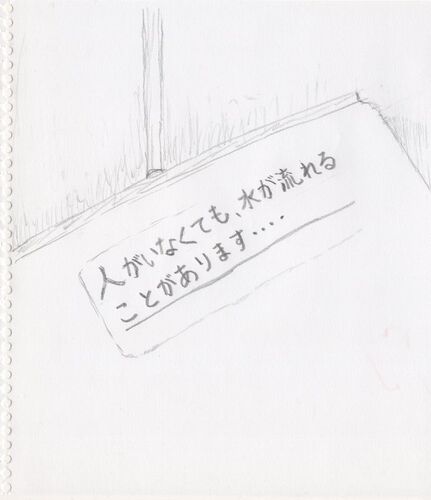 人がいなくても、水が流れる
ことがあります....